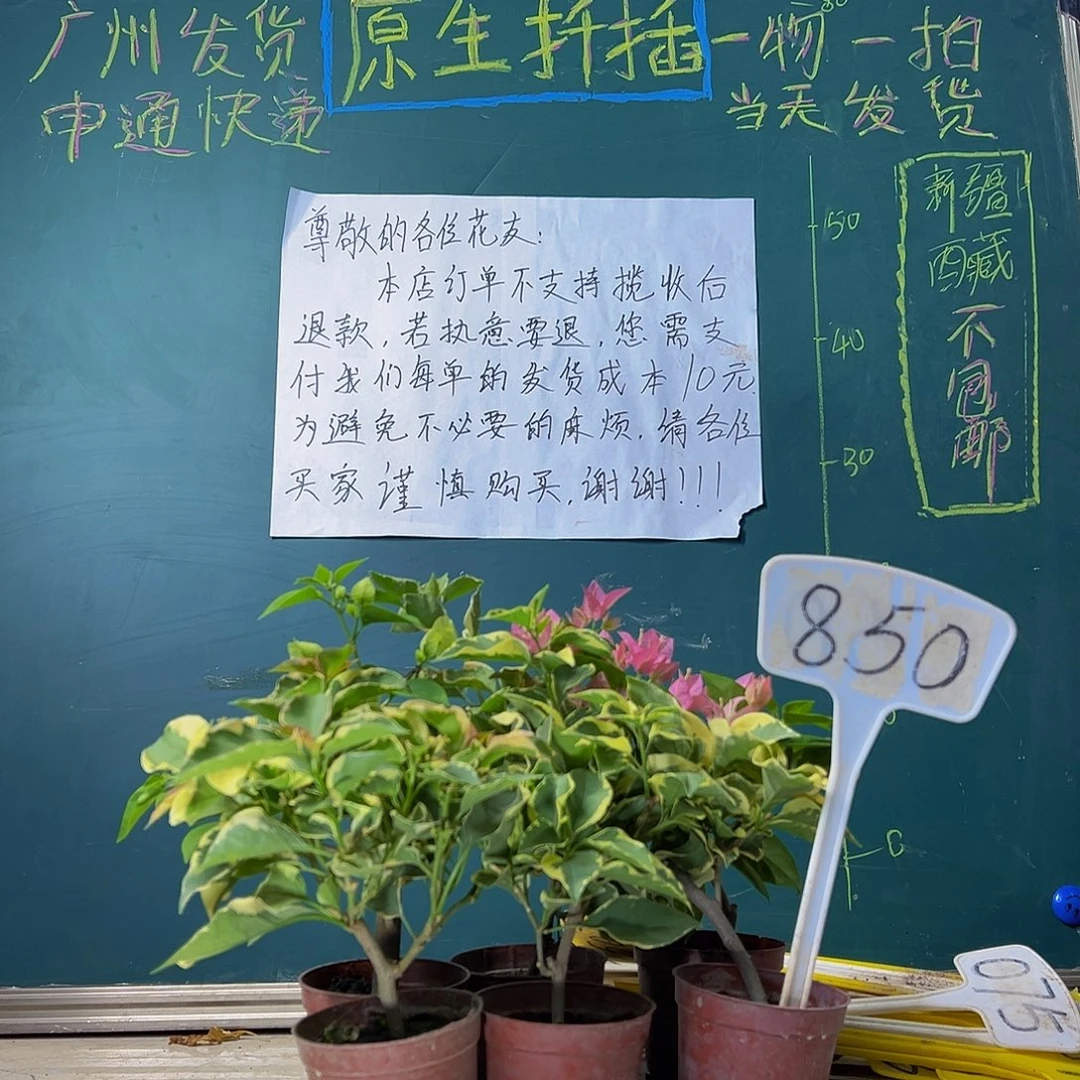 广州发货
申通快递
原生扦插
一物一拍
当天发货
尊敬的各位花友：
本店订单不支持揽收后
退款，若执意要退，您需支
付我们每单的发货成本10元
为避免不必要的麻烦，请各位
买家谨慎购买，谢谢！！！
50
40
30
0
新疆
西藏
不包邮
850
075